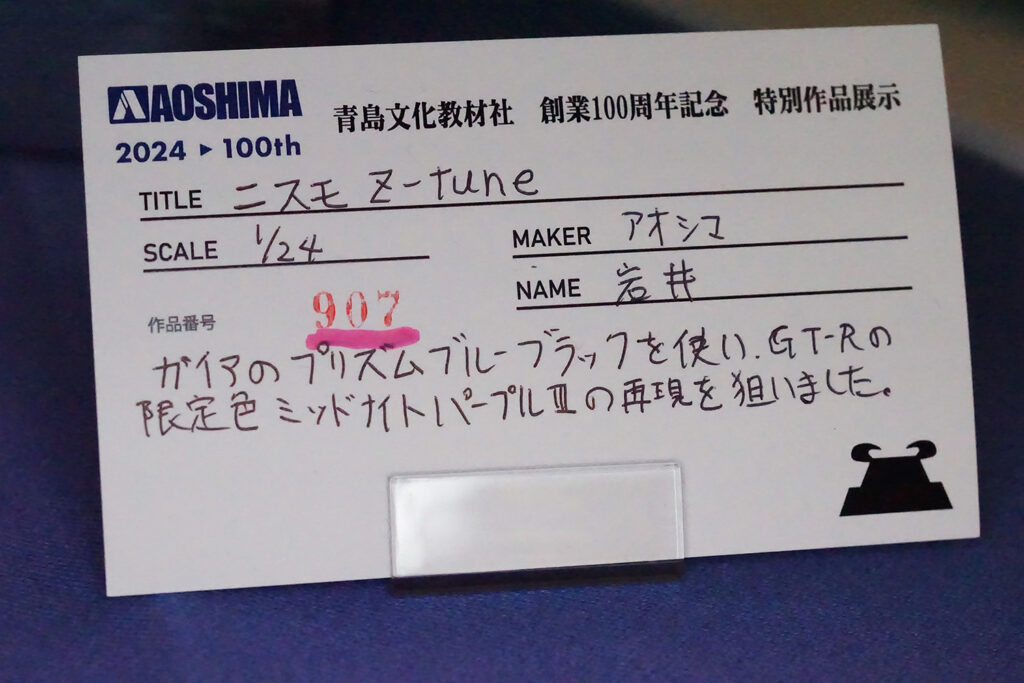 AOSHIMA
2024 ▶ 100th
青島文化教材社 創業100周年記念 特別作品展示
TITLE ニスモ Z-tune
SCALE 1/24
MAKER アオシマ
NAME 岩井
作品番号 907
ガイアのプリズムブルーブラックを使い、GT-Rの
限定色ミッドナイトパープルⅢの再現を狙いました。